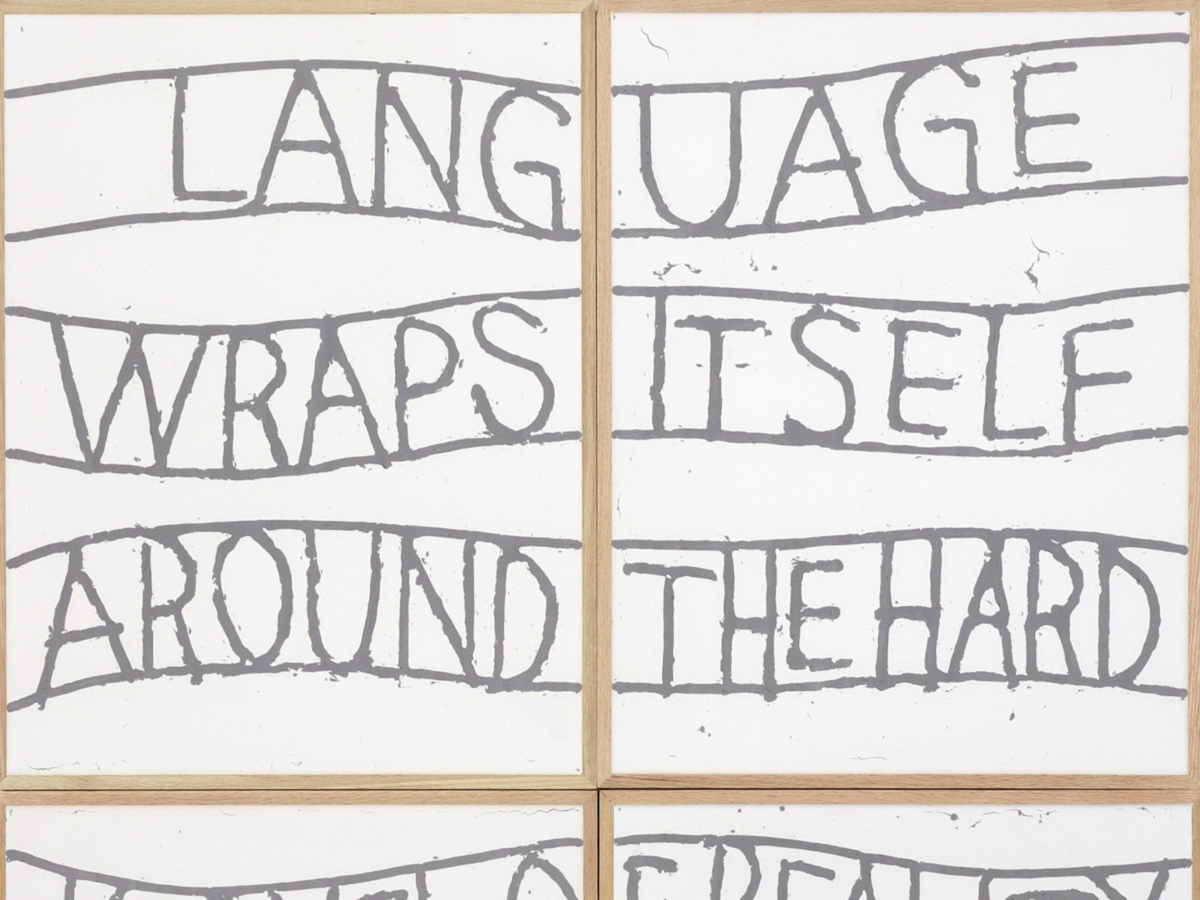 LANGUAGE
WRAPS ITSELF
AROUND THE HARD